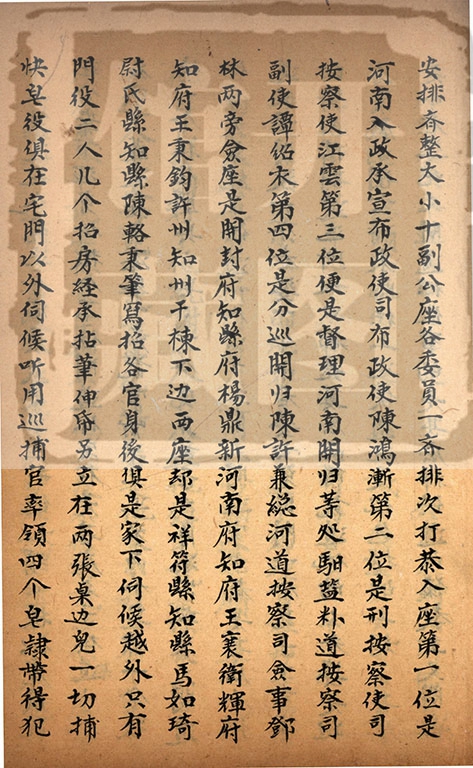 安排斉整大小十副公座各委員一斉排次打恭入座第一位是
河南入政承宣布政使司布政使陳鴻漸第二位是刑按察使司
按察使江雲第三位便是督理河南開归等処馹盐朴道按察司
副使譚紹衣第四位是分巡開归陳許兼総河道按察司僉事鄧
林两旁僉座是開封府知縣府楊鼎新河南府知府王襄衛輝府
知府王秉鈞許州知州干棟下边两座却是祥符縣知縣馬如琦
尉氏縣知縣陳輅秉筆寫招各官身後俱是家下伺候越外只有
門役二人几个招房経承拈筆伸帋另立在两張桌边皃一切捕
快皂役俱在宅門以外伺候听用巡捕官率領四个皂隸帶得犯